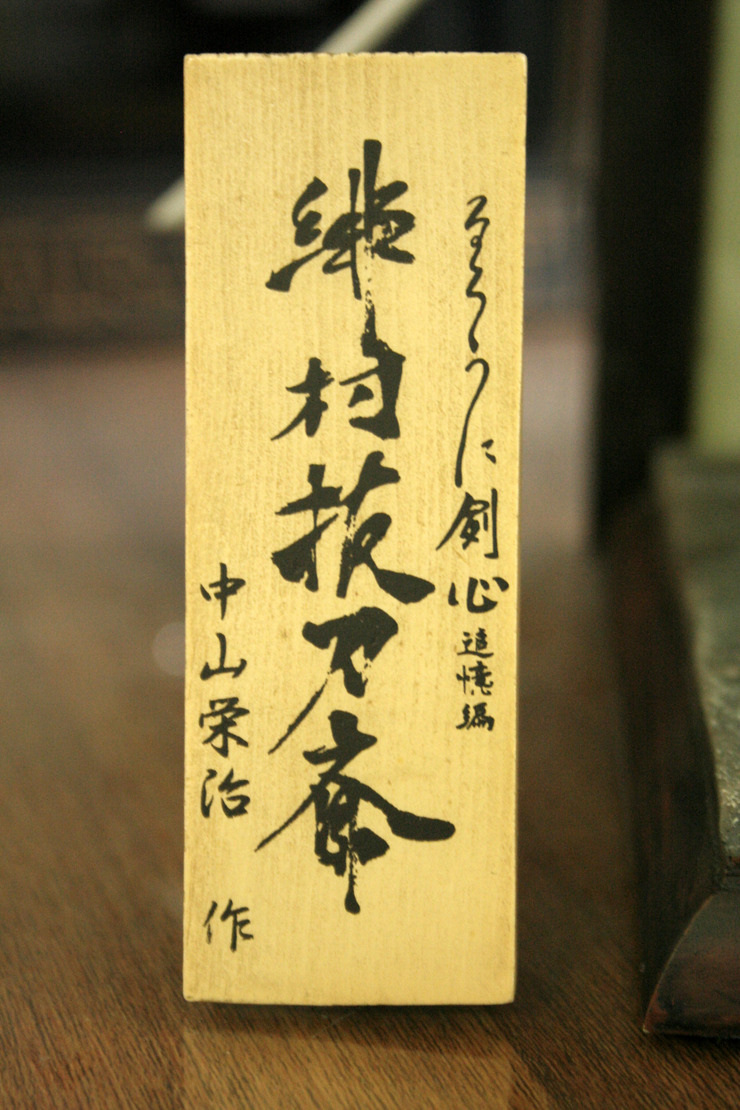 るろうに剣心 追憶編
緋村抜刀斎
中山栄治 作